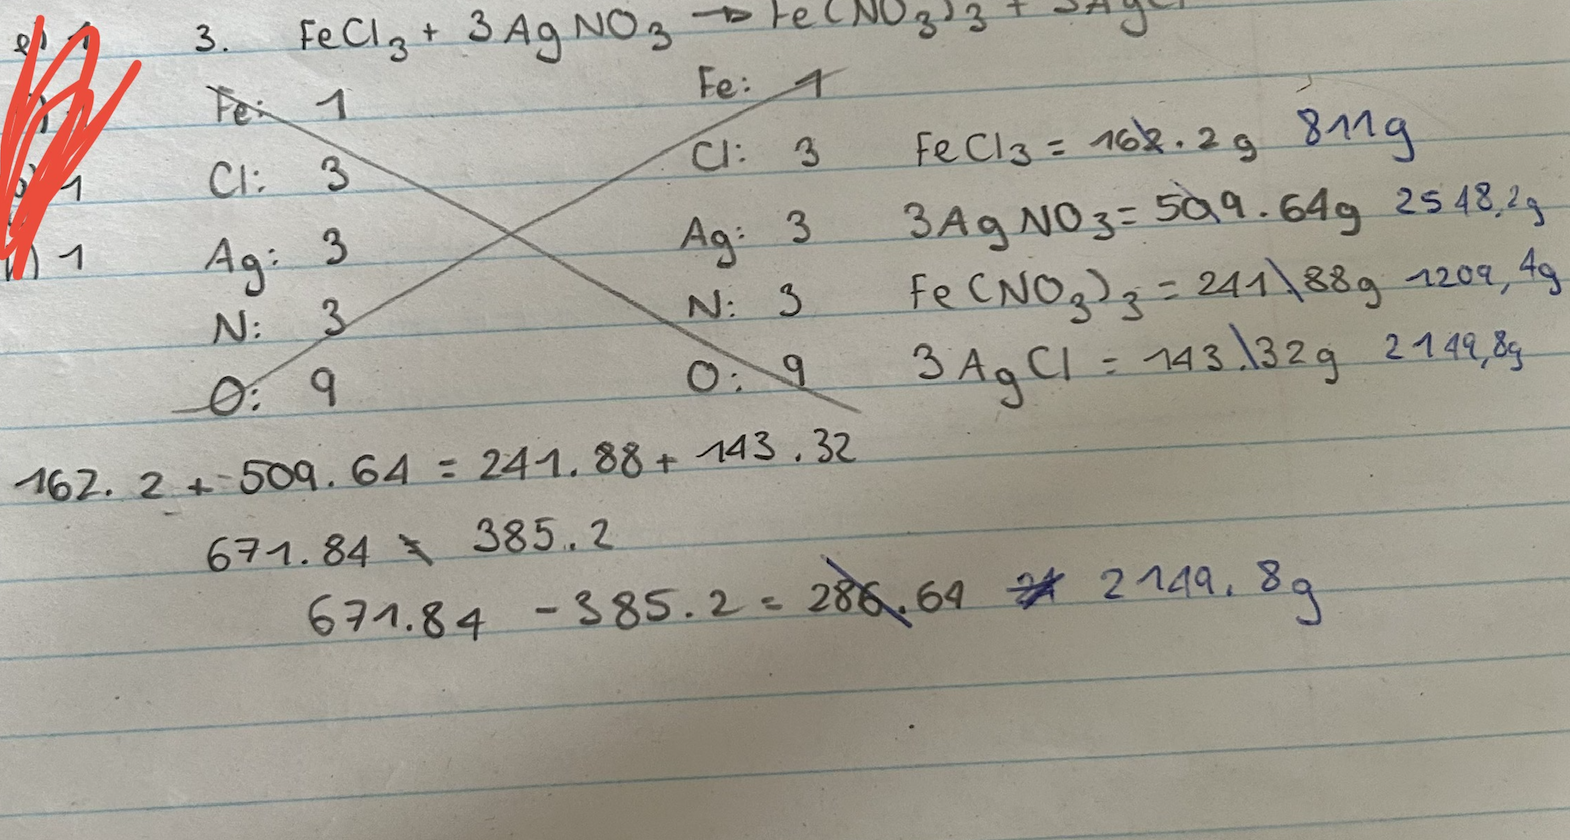 3. FeCl3 + 3AgNO3 → Fe(NO3)3 + 3AgCl
Fe: 1 Fe: 1
Cl: 3 Cl: 3 FeCl3 = 162.2g 811g
1
Ag: 3 Ag: 3 3AgNO3 = 509.64g 2548,2g
1
N: 3 N: 3 Fe(NO3)3 = 241.88g 1209,4g
O: 9 O: 9 3AgCl = 143.32g 2149,8g
162.2 + 509.64 = 241.88 + 143.32
671.84 ≠ 385.2
671.84 - 385.2 = 286.64 2149.8g